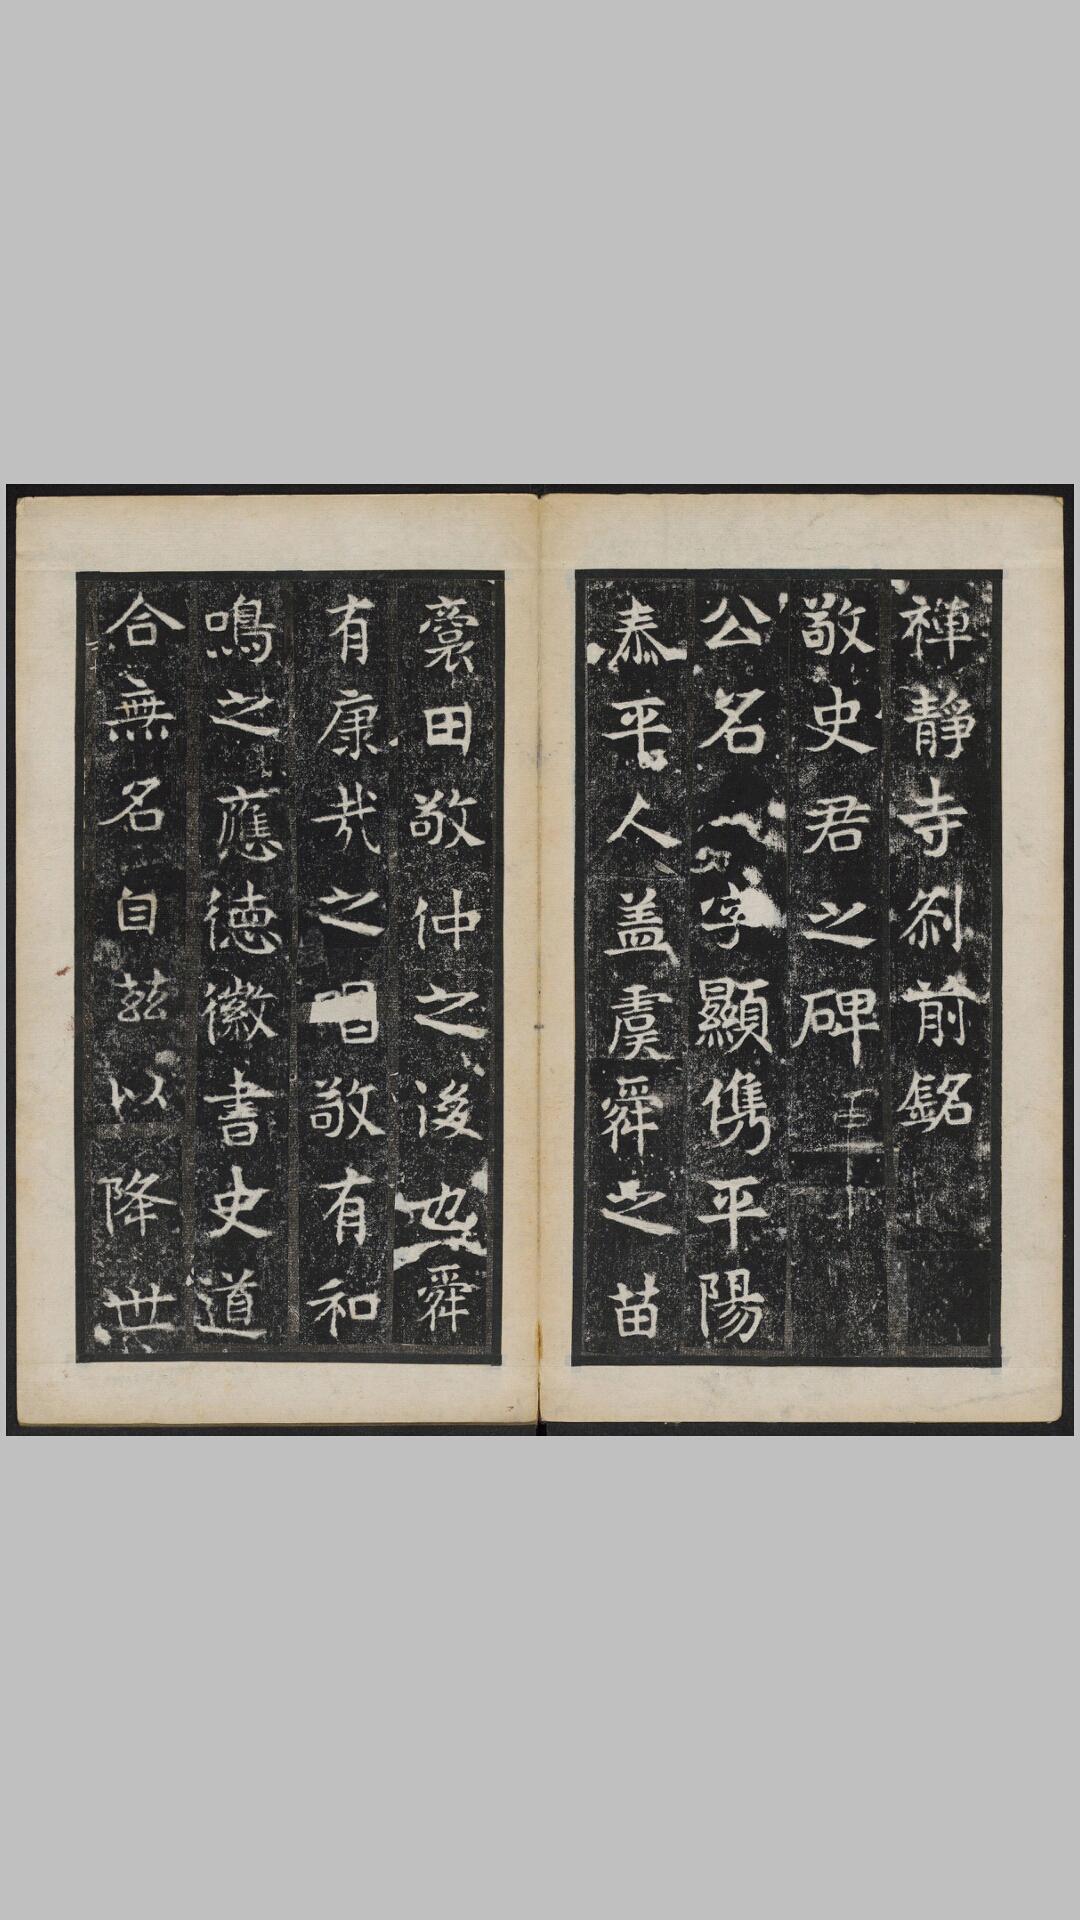 禪靜寺刹前銘
敬史君之碑
公名字顯儁平陽
泰平人盖虞舜之苗
裔田敬仲之後也舜
有康哉之唱敬有和
鳴之應德徽書史道
合無名自茲以降世